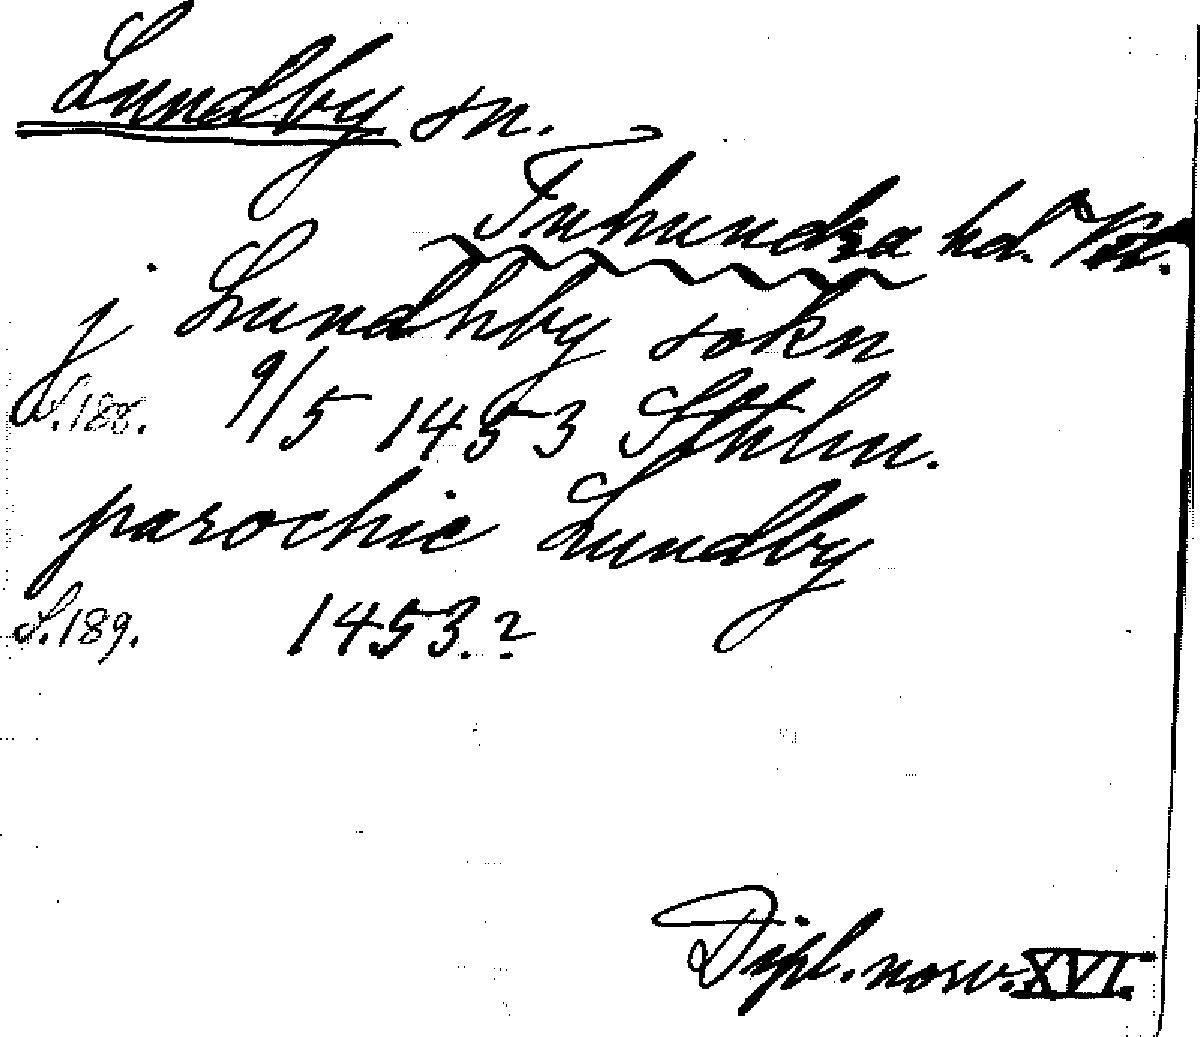 Lundby sn.
Tuhundra hd. Vstm.
j Lundhby sokn
S.188. 9/5 1453 Sthlm.
parochie Lundby
S.189. 1453.?
Dipl. norv. XVI.